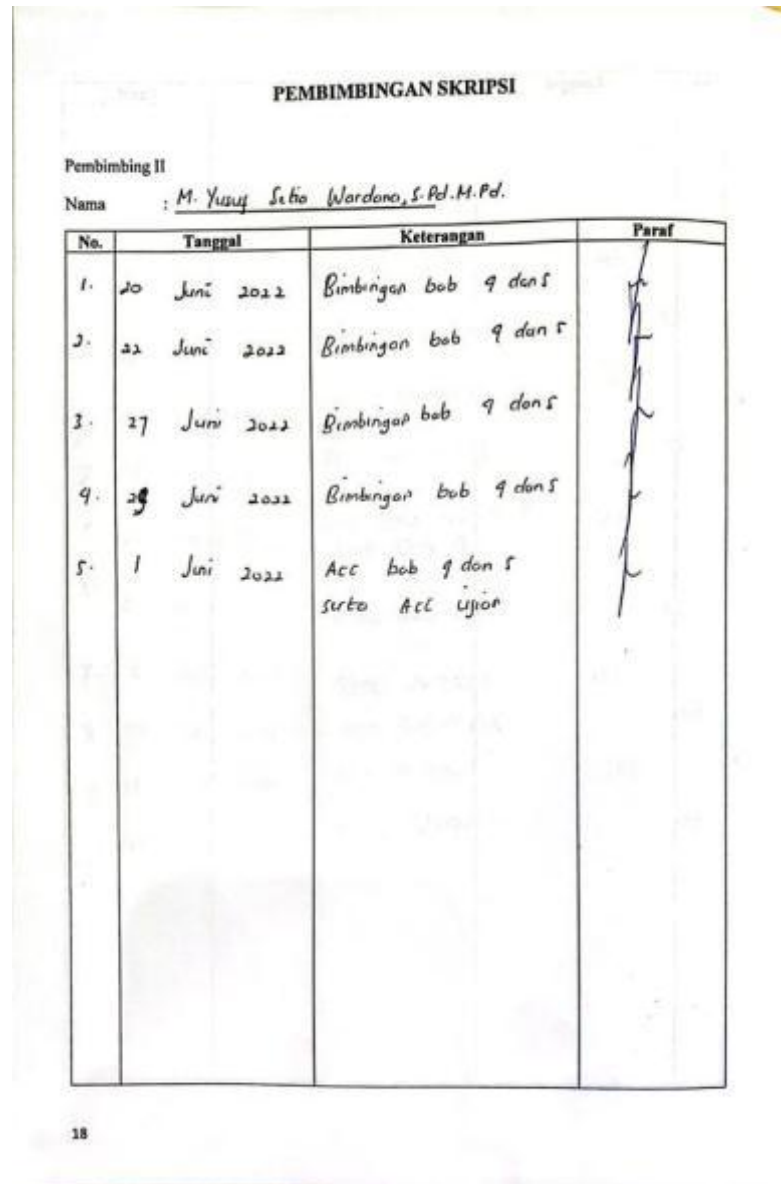 PEMBIMBINGAN SKRIPSI
Pembimbing II
Nama : M. Yusuf Setia Wardana, S.Pd.M.Pd.
No. Tanggal Keterangan Paraf
1. 20 Juni 2022 Bimbingan bab 4 dan 5
2. 22 Juni 2022 Bimbingan bab 4 dan 5
3. 27 Juni 2022 Bimbingan bab 4 dan 5
4. 29 Juni 2022 Bimbingan bab 4 dan 5
5. 1 Juni 2022 Acc bab 4 dan 5
serta Acc ujian
18